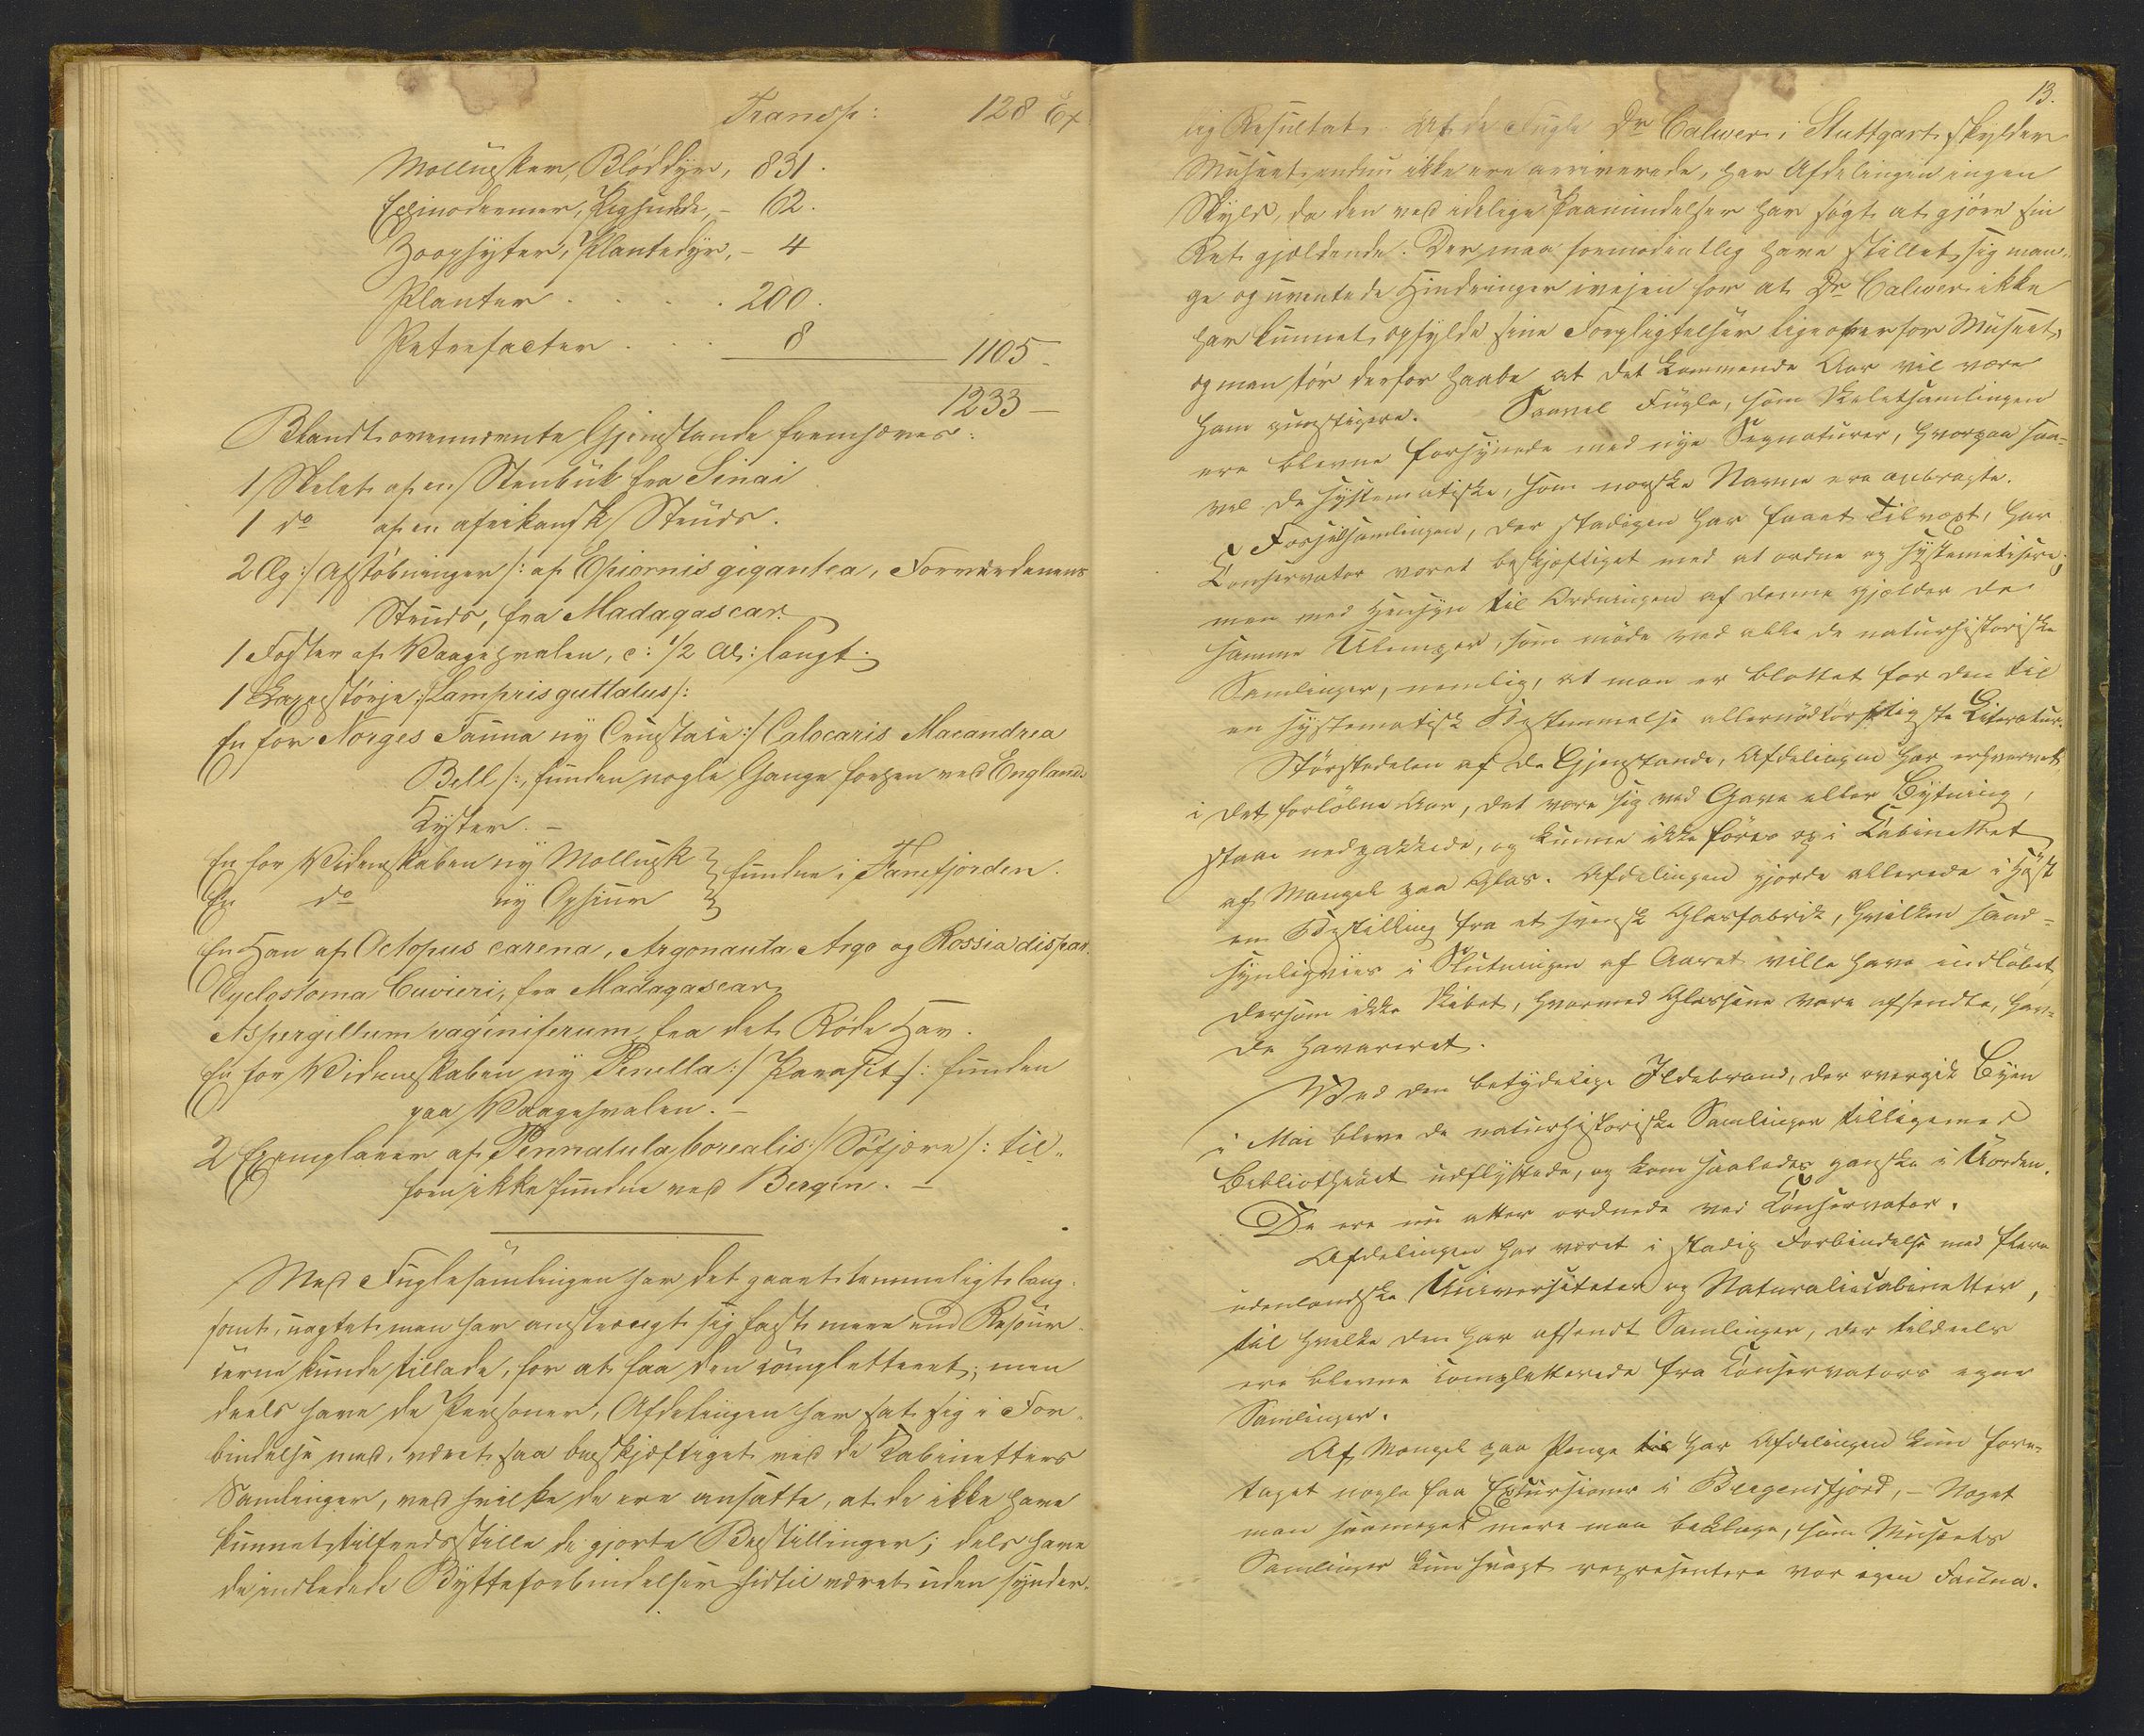 Transp: 128 Ex
Mollusker, Bløddyr, 831.
Echinodermer, Pighude, - 62.
Zoophyter, Plantedyr, - 4
Planter . . . . 200.
Petrefacter . . . 8 1105 -
1233 -
Blandt ovennævnte Gjenstande fremhæves:
1 Skelet af en Stenbuk fra Sinai.
1 do af en afrikansk Struds.
2 Æg :/ Afstøbninger /: af Epiornis gigantea, Forverdenens
Struds, fra Madagascar.
1 Foster af Vaagehvalen, c: 1/2 Al: langt.
1 Laxestørje :/ Lampris guttatus /:
En for Norges Fauna ny Crustace :/ Calocaris Macandrea
Bell /:, funden nogle Gange forhen ved Englands
Kyster. -
En for Videnskaben ny Mollusk } fundne i Fanefjorden.
En do ny Ophiur
En Han af Octopus carena, Argonauta Argo og Rossia dispar.
Cyclostoma Cuvieri, fra Madagascar.
Aspergillum vaginiferum fra det Røde Hav.
En for Videnskaben ny Penella :/ Parasit /: funden
paa Vaagehvalen. -
2 Exemplarer af Pennatula borealis :/ Søfjære /: til-
foren ikke fundne ved Bergen. -
Med Fuglesamlingen har det gaaet temmeligt lang-
somt, uagtet man har anstrengt sig fast mere end Ressour-
cerne kunde tillade, for at faa den completteret; men
deels have de Personer, Afdelingen har sat sig i For-
bindelse med, været saa beskjæftiget ved de Kabinetters
Samlinger, ved hvilke de ere ansatte, at de ikke have
kunnet tilfredsstille de gjorte Bestillinger; dels have
de indledede Bytteforbindelser hidtil været uden synder-
13.
lig Resultat. At de Fugle Dr Calwer i Stuttgart skylder
Museet, endnu ikke ere arriverede, har Afdelingen ingen
Skyld, da den ved idelige Paamindelser har søgt at gjøre sin
Ret gjældende. Der maa formodentlig have stillet sig man-
ge og uventede Hindringer ivejen for at Dr Calwer ikke
har kunnet opfylde sine Forpligtelser ligeoverfor Museet,
og man tør derfor haabe at det kommende Aar vil være
ham gunstigere. Saavel Fugle, som Skeletsamlingen
ere blevne forsynede med nye Signaturer, hvorpaa saa-
vel de systematiske, som norske Navne ere anbragte.
I Fossilsamlingen, der stadigen har faaet Tilvæxt, har
Conservator været beskjæftiget med at ordne og systematisere;
men med Hensyn til Ordningen af denne gjælder de
samme Ulemper, som møde ved alle de naturhistoriske
Samlinger, nemlig, at man er blottet for den til
en systematisk Bestemmelse allernødtørftigste Literatur.
Størstedelen af de Gjenstande, Afdelingen har erhvervet
i det forløbne Aar, det være sig ved Gave eller Bytning,
staae nedpakkede, og kunne ikke føres op i Cabinettet
af Mangel paa Glas. Afdelingen gjorde allerede i Høst
en Bestilling fra et svensk Glasfabrik, hvilken sand-
synligviis i Slutningen af Aaret ville have indløbet,
dersom ikke Skibet, hvormed Glassene vare afsendte, hav-
de havareret.
Ved den betydelige Ildebrand, der overgik Byen
i Mai bleve de naturhistoriske Samlinger tilligemed
Bibliotheket udflyttede, og kom saaledes ganske i Uorden.
De ere nu atter ordnede ved Conservator.
Afdelingen har været i stadig Forbindelse med flere
udenlandske Universiteter og Naturaliecabinetter,
til hvilke den har afsendt Samlinger, der tildeels
ere blevne completterede fra Conservators egne
Samlinger.
Af Mangel paa Penge til har Afdelingen kun fore-
taget nogle faa Excursioner i Bergensfjord, - Noget
man saameget mere maa beklage, som Museets
Samlinger kun svagt repræsentere vor egen Fauna.